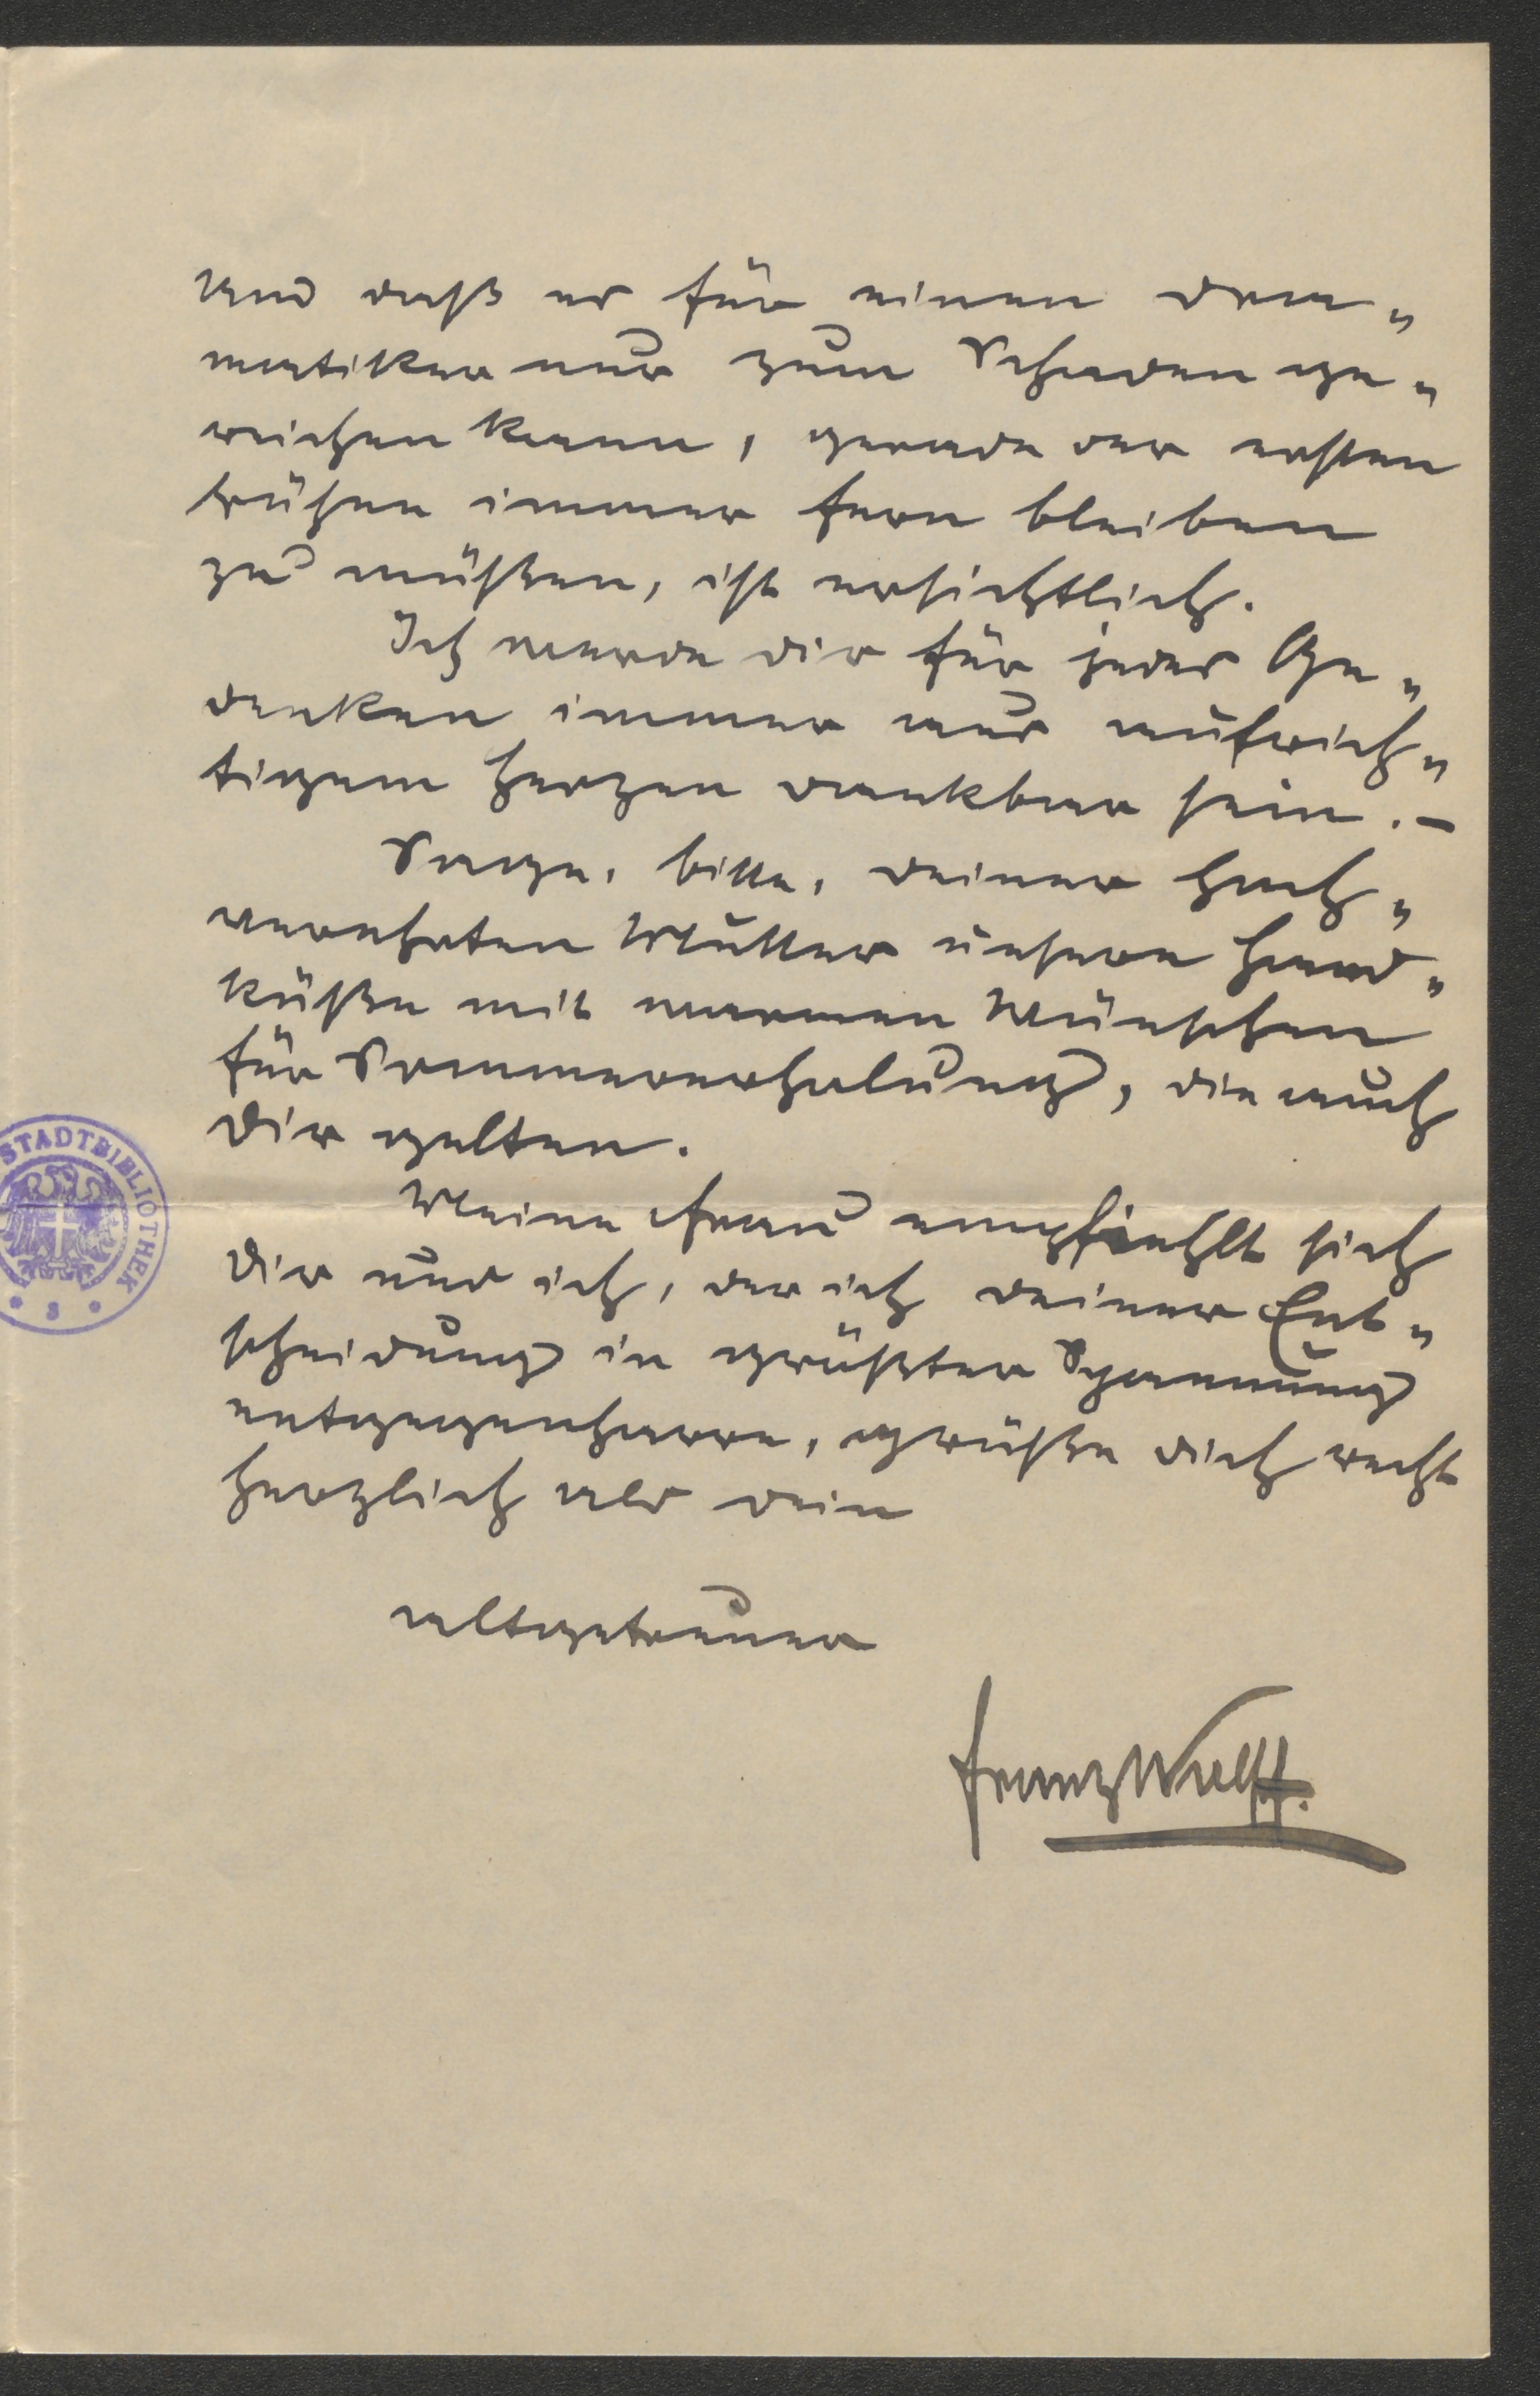 Und daß es für einen Dra„
matiker nur zum Schaden ge„
reichen kann, gerade der ersten
Bühne immer fern bleiben
zu müßen, ist ersichtlich.
Ich werde dir für jedes Ge„
denken immer aus aufrich„
tigem Herzen dankbar sein. –
Sage, bitte, deiner hoch„
verehrten Mutter unsere Hand„
küße mit warmen Wünschen
für Sommererholung, die auch
dir gelten.
Meine Frau empfiehlt sich
dir und ich, der ich deiner Ent„
scheidung in größter Spannung
entgegenharre, grüße dich recht
herzlich als dein
altgetreuer
Franz Wolff.
STADTBIBLIOTHEK
* S *